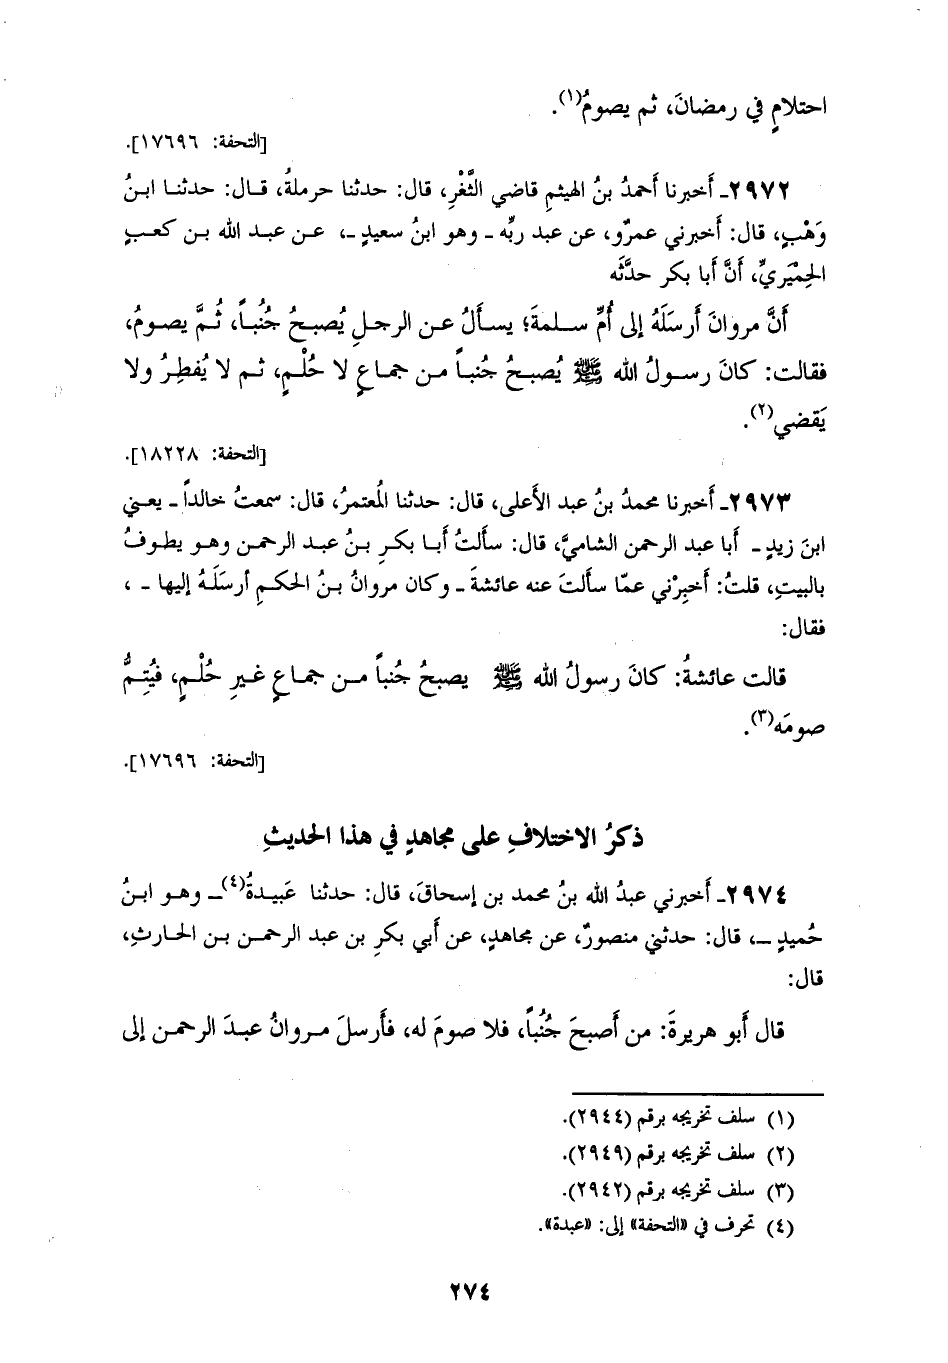 احتلامٍ في رمضانَ، ثم يصومُ(١).
[التحفة: ١٧٦٩٦].
٢٩٧٢ـ أخبرنا أحمدُ بنُ الهيثمِ قاضي الثَّغْرِ، قال: حدثنا حرملةُ، قال: حدثنا ابنُ
وَهْبٍ، قال: أخبرني عمرٌو، عن عبد ربِّه ـ وهو ابنُ سعيدٍ ـ، عن عبد الله بن كعبٍ
الحِمْيَريِّ، أنَّ أبا بكر حدَّثَه
أنَّ مروانَ أرسَلَهُ إلى أُمِّ سلمةَ؛ يسألُ عن الرجلِ يُصبحُ جُنُباً، ثُمَّ يصومُ،
فقالت: كانَ رسولُ الله ﷺ يُصبحُ جُنُباً من جماعٍ لا حُلْمٍ، ثم لا يُفطِرُ ولا
يَقضي(٢).
[التحفة: ١٨٢٢٨].
٢٩٧٣ـ أخبرنا محمدُ بنُ عبد الأعلى، قال: حدثنا المُعتمرُ، قال: سمعتُ خالداً ـ يعني
ابنَ زيدٍ ـ أبا عبد الرحمن الشاميَّ، قال: سألتُ أبا بكرِ بنُ عبد الرحمن وهو يطوفُ
بالبيتِ، قلتُ: أخبِرْني عمّا سألتَ عنه عائشةَ ـ وكان مروانُ بنُ الحكمِ أرسَلَهُ إليها ـ ،
فقال:
قالت عائشةُ: كانَ رسولُ الله ﷺ يصبحُ جُنُباً من جماعٍ غيرِ حُلْمٍ، فيُتِمُّ
صومَه(٣).
[التحفة: ١٧٦٩٦].
ذكرُ الاختلافِ على مجاهدٍ في هذا الحديثِ
٢٩٧٤ـ أخبرني عبدُ الله بنُ محمد بن إسحاقَ، قال: حدثنا عَبِيدةُ(٤)ـ وهو ابنُ
حُميدٍ ـ، قال: حدثني منصورٌ، عن مجاهدٍ، عن أبي بكرِ بن عبد الرحمن بن الحارثِ،
قال:
قال أبو هريرةَ: من أصبحَ جُنُباً، فلا صومَ له، فأرسلَ مروانُ عبدَ الرحمن إلى
(١) سلف تخريجه برقم (٢٩٤٤).
(٢) سلف تخريجه برقم (٢٩٤٩).
(٣) سلف تخريجه برقم (٢٩٤٢).
(٤) تحرف في «التحفة» إلى: «عبدة».
٢٧٤